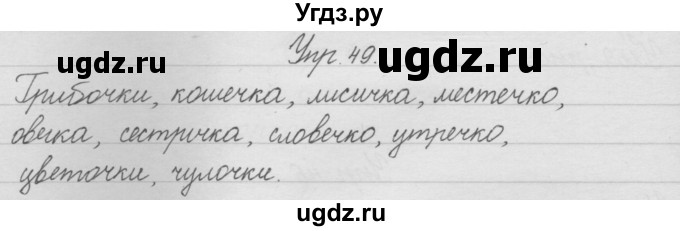 Угдз.ру
Упр. 49.
ugdz.ru ugdz.ru
Грибочки, кошечка, лисичка, местечко,
овечка, сестричка, словечко, утречко,
цветочки, чулочки.
ugdz.ru ugdz.ru
ugdz.ru